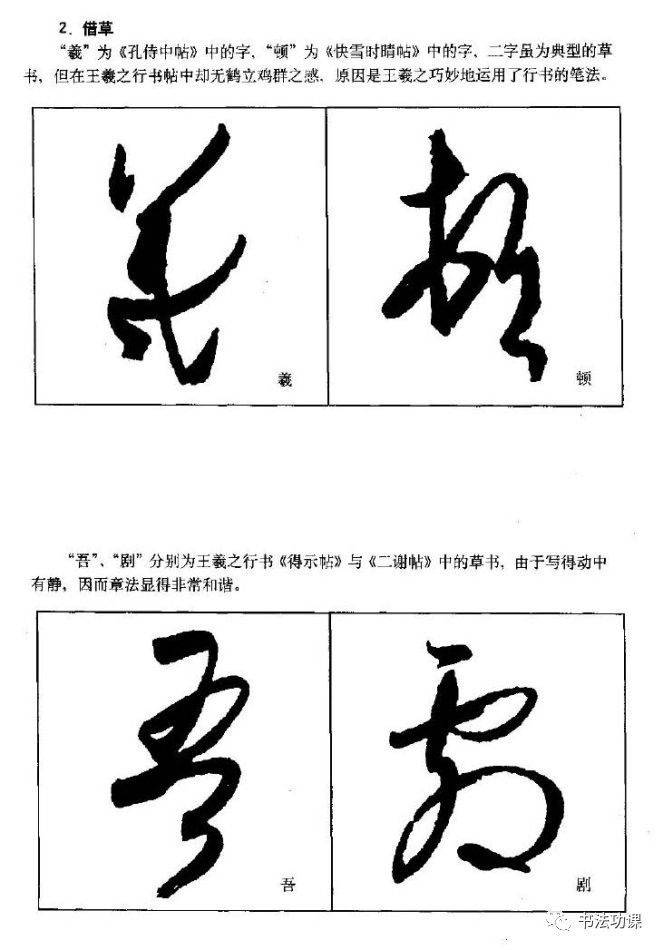 2. 借草
“羲”为《孔侍中帖》中的字、“顿”为《快雪时晴帖》中的字、二字虽为典型的草
书，但在王羲之行书帖中却无鹤立鸡群之感，原因是王羲之巧妙地运用了行书的笔法。
羲
顿
羲
顿
“吾”、“剧”分别为王羲之行书《得示帖》与《二谢帖》中的草书，由于写得动中
有静，因而章法显得非常和谐。
吾
剧
吾
剧
书法功课